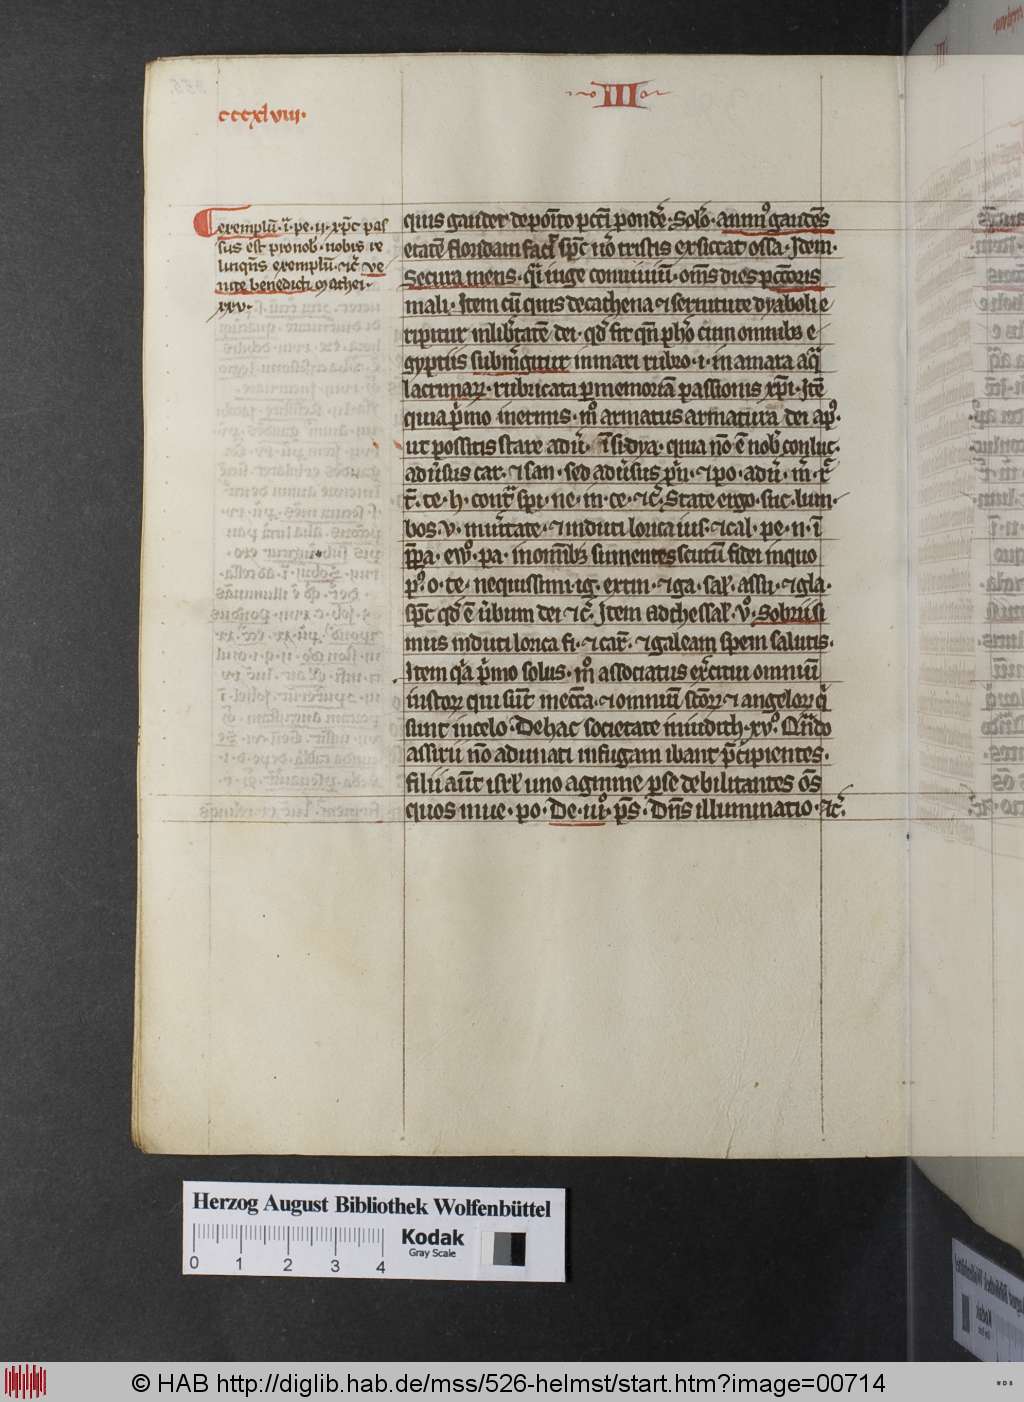 III
cccxlviii·
exemplū· i· pe· ii· xp̄c pas
sus est pro nob· nobis re
linqn̄s exemplū· ⁊c̄ ve
nite benedicti mathei·
xxv·
quis gaudet deposito pcc̄i pondē· Salō· anim9 gaudēs
etatē floridam facit sp̄c ū̊o tristis exsiccat ossa· Item·
Secura mens· q̄i iuge conuiuiū· om̄s dies pcc̄oris
mali· Item cū quis de cathena ⁊ seruitute dyaboli e
ripitur in lib̄tatē dei· qd̄ fit qn̄ pharo cum omnibꝫ e
gyptiis subm̄gitur in mari rubro· i· in amara aq̄
lacrimarꝝ· rubricata p memoriā passionis xp̄i· Itē
quia p̄mo inermis· m̊ armatus armatura dei ap̊·
ut possitis stare adū· īsi· dya· quia nō ē nob̄ conluc·
adūsus car· ⁊ san· sed adūsus p̄n· ⁊ po· adū· m̄· r̄
t̄· te· h· cont̄ spi· ne· in· ce· ⁊c̄· State ergo suc· lum·
bos· v· in ūitate· ⁊ induti lorica ius· ⁊ cal· pe· in ī
p̄pa· eẘ· pa· in om̄ibꝫ sumentes scutū fidei in quo
p̊· o· te· nequissimi· ig· extin· ⁊ ga· sal̄· assu· ⁊ gla·
sp̄c qd̄ ē ūbum dei ⁊c̄· Item ad thessal̄· v̊· Sobrii si
mus induti lorica fi· ⁊ car̄· ⁊ galeam spem salutis·
Item q̄a p̄mo solus· m̊ associatus exc̄itui omniū
iustorꝝ qui sūt in ecc̄a· ⁊ omniū sc̄orꝝ ⁊ angelorꝝ q̄
sunt in celo· De hac societate in iudith· xv̊· Qn̄do
assirii nō adunati in fugam ibant p̄cipientes·
filii aūt isrl̄ uno agmine p̱seq debilitantes ōs
quos inue· po· De· iii̊· p̄s· Dn̄s illuminatio· ⁊c̄·
Herzog August Bibliothek Wolfenbüttel
0 1 2 3 4
Kodak
Gray Scale
© HAB http://diglib.hab.de/mss/526-helmst/start.htm?image=00714